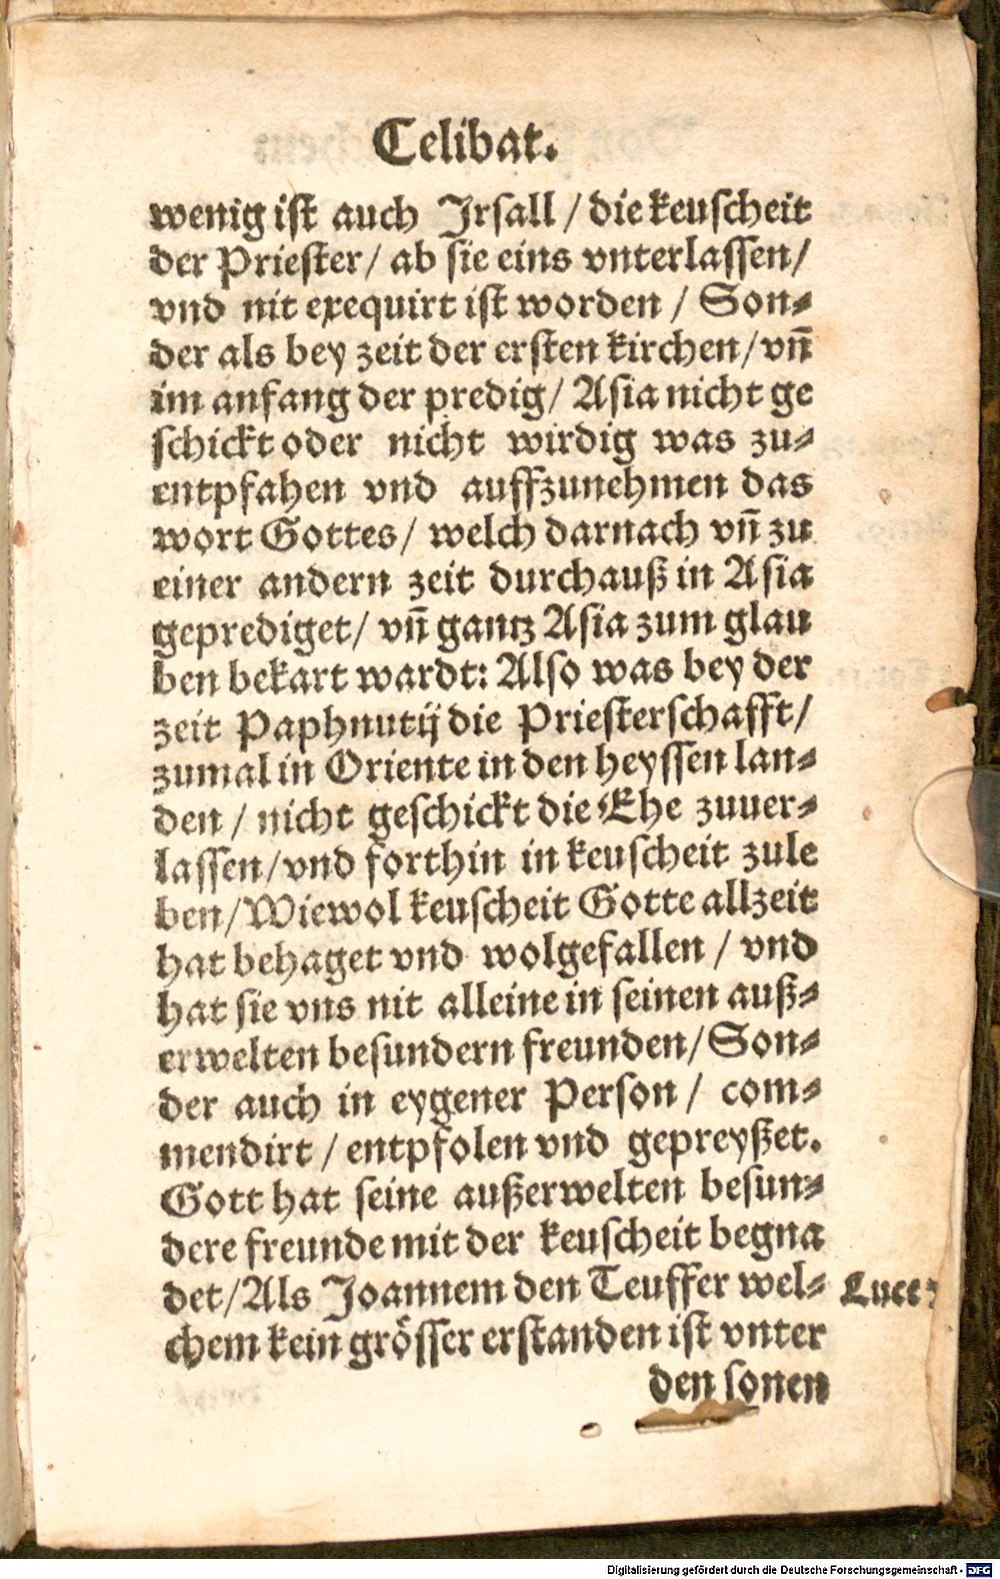 Celibat.
wenig ist auch Jrsall / die keuscheit
der Priester / ab sie eins vnterlassen /
vnd nit exequirt ist worden / Son⸗
der als bey zeit der ersten kirchen / vñ
im anfang der predig / Asia nicht ge
schickt oder nicht wirdig was zu⸗
entpfahen vnd auffzunehmen das
wort Gottes / welch darnach vñ zu
einer andern zeit durchauß in Asia
geprediget / vñ gantz Asia zum glau
ben bekart wardt: Also was bey der
zeit Paphnutij die Priesterschafft /
zumal in Oriente in den heyssen lan⸗
den / nicht geschickt die Ehe zuuer⸗
lassen / vnd forthin in keuscheit zule
ben / Wiewol keuscheit Gotte allzeit
hat behaget vnd wolgefallen / vnd
hat sie vns nit alleine in seinen auß⸗
erwelten besundern freunden / Son⸗
der auch in eygener Person / com⸗
mendirt / entpfolen vnd gepreyßet.
Gott hat seine außerwelten besun⸗
dere freunde mit der keuscheit begna
det / Als Joannem den Teuffer wel⸗
chem kein grösser erstanden ist vnter
den sonen
Digitalisierung gefördert durch die Deutsche Forschungsgemeinschaft - DFG